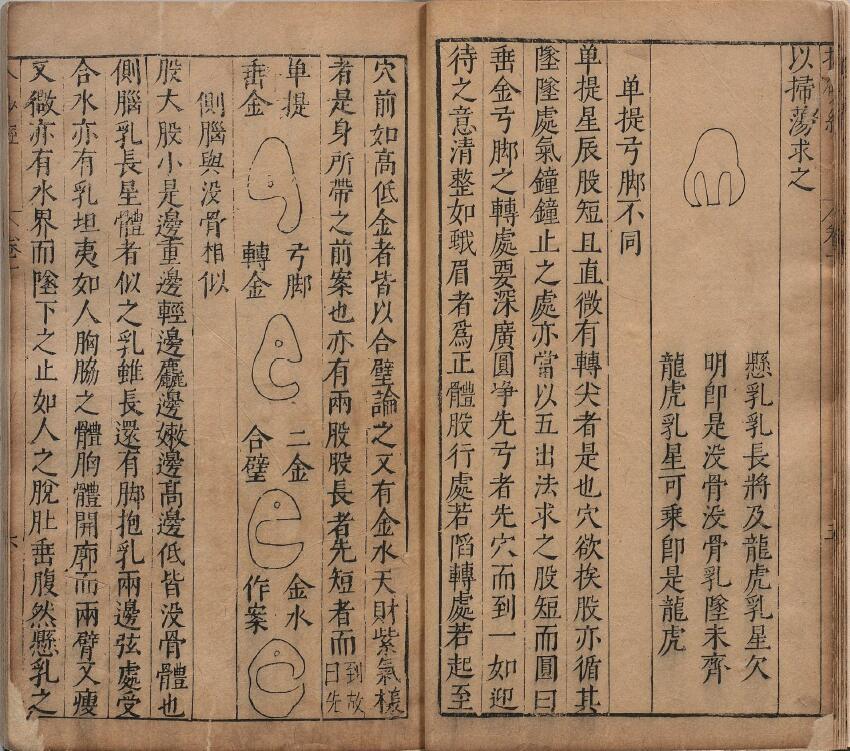 以掃蕩求之
懸乳乳長將及龍虎乳星欠
明卽是没骨没骨乳墜未齊
龍虎乳星可乘卽是龍虎
单提弓脚不同
单提星辰股短且直微有轉尖者是也穴欲挨股亦循其
墜墜處氣鐘鐘止之處亦當以五出法求之股短而圓曰
垂金弓脚之轉處要深廣圓淨先弓者先穴而到一如迎
待之意清整如蛾眉者爲正體股行處若滔轉處若起至
穴前如高低金者皆以合璧論之又有金水天財紫氣樣
者是身所帶之前案也亦有兩股股長者先短者而
到故
曰先
单提
垂金
弓脚
轉金
二金
合璧
金水
作案
側腦與没骨相似
股大股小是邊重邊輕邊麤邊嫩邊髙邊低皆没骨體也
側腦乳長星體者似之乳雖長還有脚抱乳兩邊弦處受
合水亦有乳坦夷如人胸脇之體胸體開廓而兩臂又瘦
又微亦有水界而墜下之止如人之脫肚垂腹然懸乳之